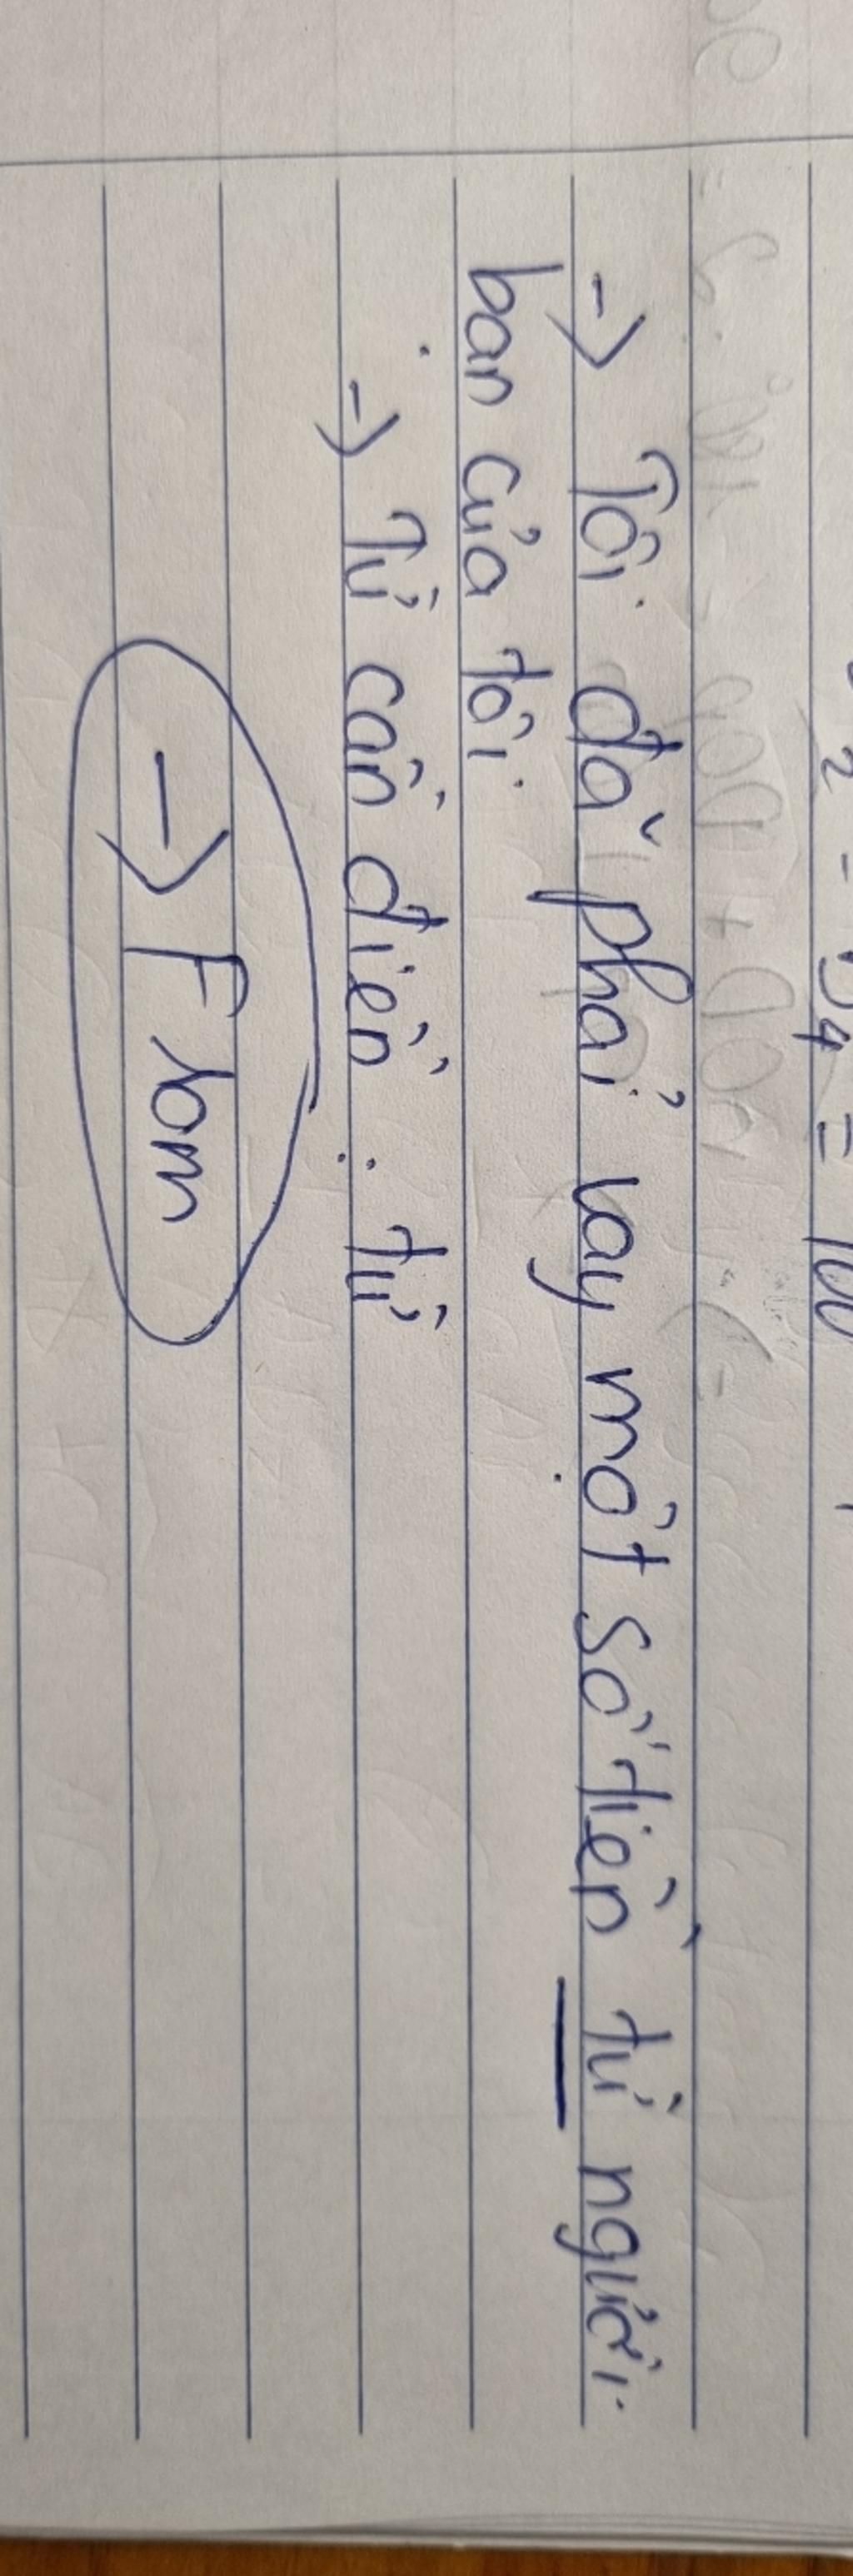 → Tôi đã phải vay một số tiền từ người
bạn của tôi
→ Từ cần điền : từ
→ From